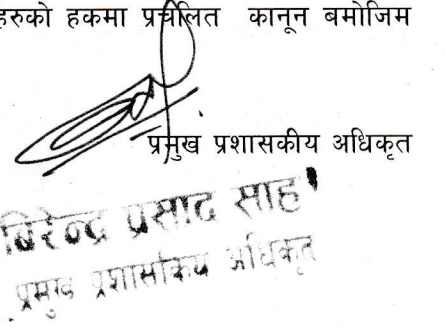 हरुको हकमा प्रचलित कानून बमोजिम
प्रमुख प्रशासकीय अधिकृत
बिरेन्द्र प्रसाद साह
प्रमुख प्रशासकिय अधिकृत